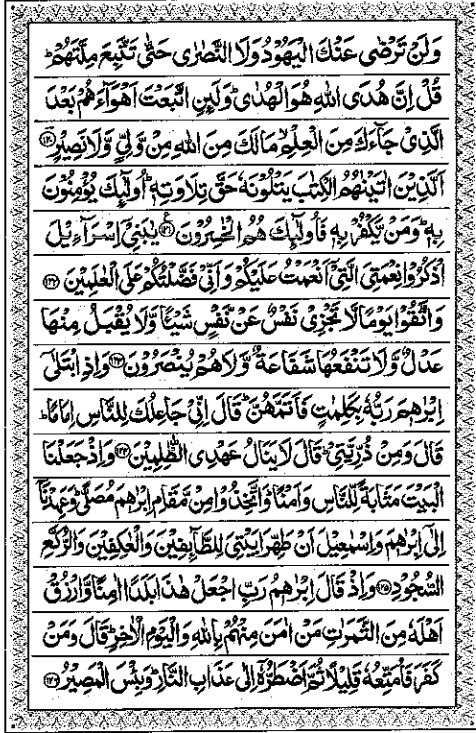 وَلَنْ تَرْضٰى عَنْكَ الْیَهُوْدُ وَلَا النَّصٰرٰى حَتّٰى تَتَّبِعَ مِلَّتَهُمْ ؕ
قُلْ اِنَّ هُدَى اللّٰهِ هُوَ الْهُدٰى ؕ وَلَىِٕنِ اتَّبَعْتَ اَهْوَآءَهُمْ بَعْدَ
الَّذِیْ جَآءَكَ مِنَ الْعِلْمِ ۙ مَا لَكَ مِنَ اللّٰهِ مِنْ وَّلِیٍّ وَّلَا نَصِیْرٍ ۱۲۰
اَلَّذِیْنَ اٰتَیْنٰهُمُ الْكِتٰبَ یَتْلُوْنَهٗ حَقَّ تِلَاوَتِهٖ ؕ اُولٰٓىِٕكَ یُؤْمِنُوْنَ
بِهٖ ؕ وَمَنْ یَّكْفُرْ بِهٖ فَاُولٰٓىِٕكَ هُمُ الْخٰسِرُوْنَ ۱۲۱ یٰبَنِیْۤ اِسْرَآءِیْلَ
اذْكُرُوْا نِعْمَتِیَ الَّتِیْۤ اَنْعَمْتُ عَلَیْكُمْ وَاَنِّیْ فَضَّلْتُكُمْ عَلَى الْعٰلَمِیْنَ ۱۲۲
وَاتَّقُوْا یَوْمًا لَّا تَجْزِیْ نَفْسٌ عَنْ نَّفْسٍ شَیْـًٔا وَّلَا یُقْبَلُ مِنْهَا
عَدْلٌ وَّلَا تَنْفَعُهَا شَفَاعَةٌ وَّلَا هُمْ یُنْصَرُوْنَ ۱۲۳ وَاِذِ ابْتَلٰۤى
اِبْرٰهٖمَ رَبُّهٗ بِكَلِمٰتٍ فَاَتَمَّهُنَّ ؕ قَالَ اِنِّیْ جَاعِلُكَ لِلنَّاسِ اِمَامًا ؕ
قَالَ وَمِنْ ذُرِّیَّتِیْ ؕ قَالَ لَا یَنَالُ عَهْدِی الظّٰلِمِیْنَ ۱۲۴ وَاِذْ جَعَلْنَا
الْبَیْتَ مَثَابَةً لِّلنَّاسِ وَاَمْنًا ؕ وَاتَّخِذُوْا مِنْ مَّقَامِ اِبْرٰهٖمَ مُصَلًّى ؕ وَعَهِدْنَاۤ
اِلٰۤى اِبْرٰهٖمَ وَاِسْمٰعِیْلَ اَنْ طَهِّرَا بَیْتِیَ لِلطَّآىِٕفِیْنَ وَالْعٰكِفِیْنَ وَالرُّكَّعِ
السُّجُوْدِ ۱۲۵ وَاِذْ قَالَ اِبْرٰهٖمُ رَبِّ اجْعَلْ هٰذَا بَلَدًا اٰمِنًا وَّارْزُقْ
اَهْلَهٗ مِنَ الثَّمَرٰتِ مَنْ اٰمَنَ مِنْهُمْ بِاللّٰهِ وَالْیَوْمِ الْاٰخِرِ ؕ قَالَ وَمَنْ
كَفَرَ فَاُمَتِّعُهٗ قَلِیْلًا ثُمَّ اَضْطَرُّهٗۤ اِلٰى عَذَابِ النَّارِ ؕ وَبِئْسَ الْمَصِیْرُ ۱۲۶